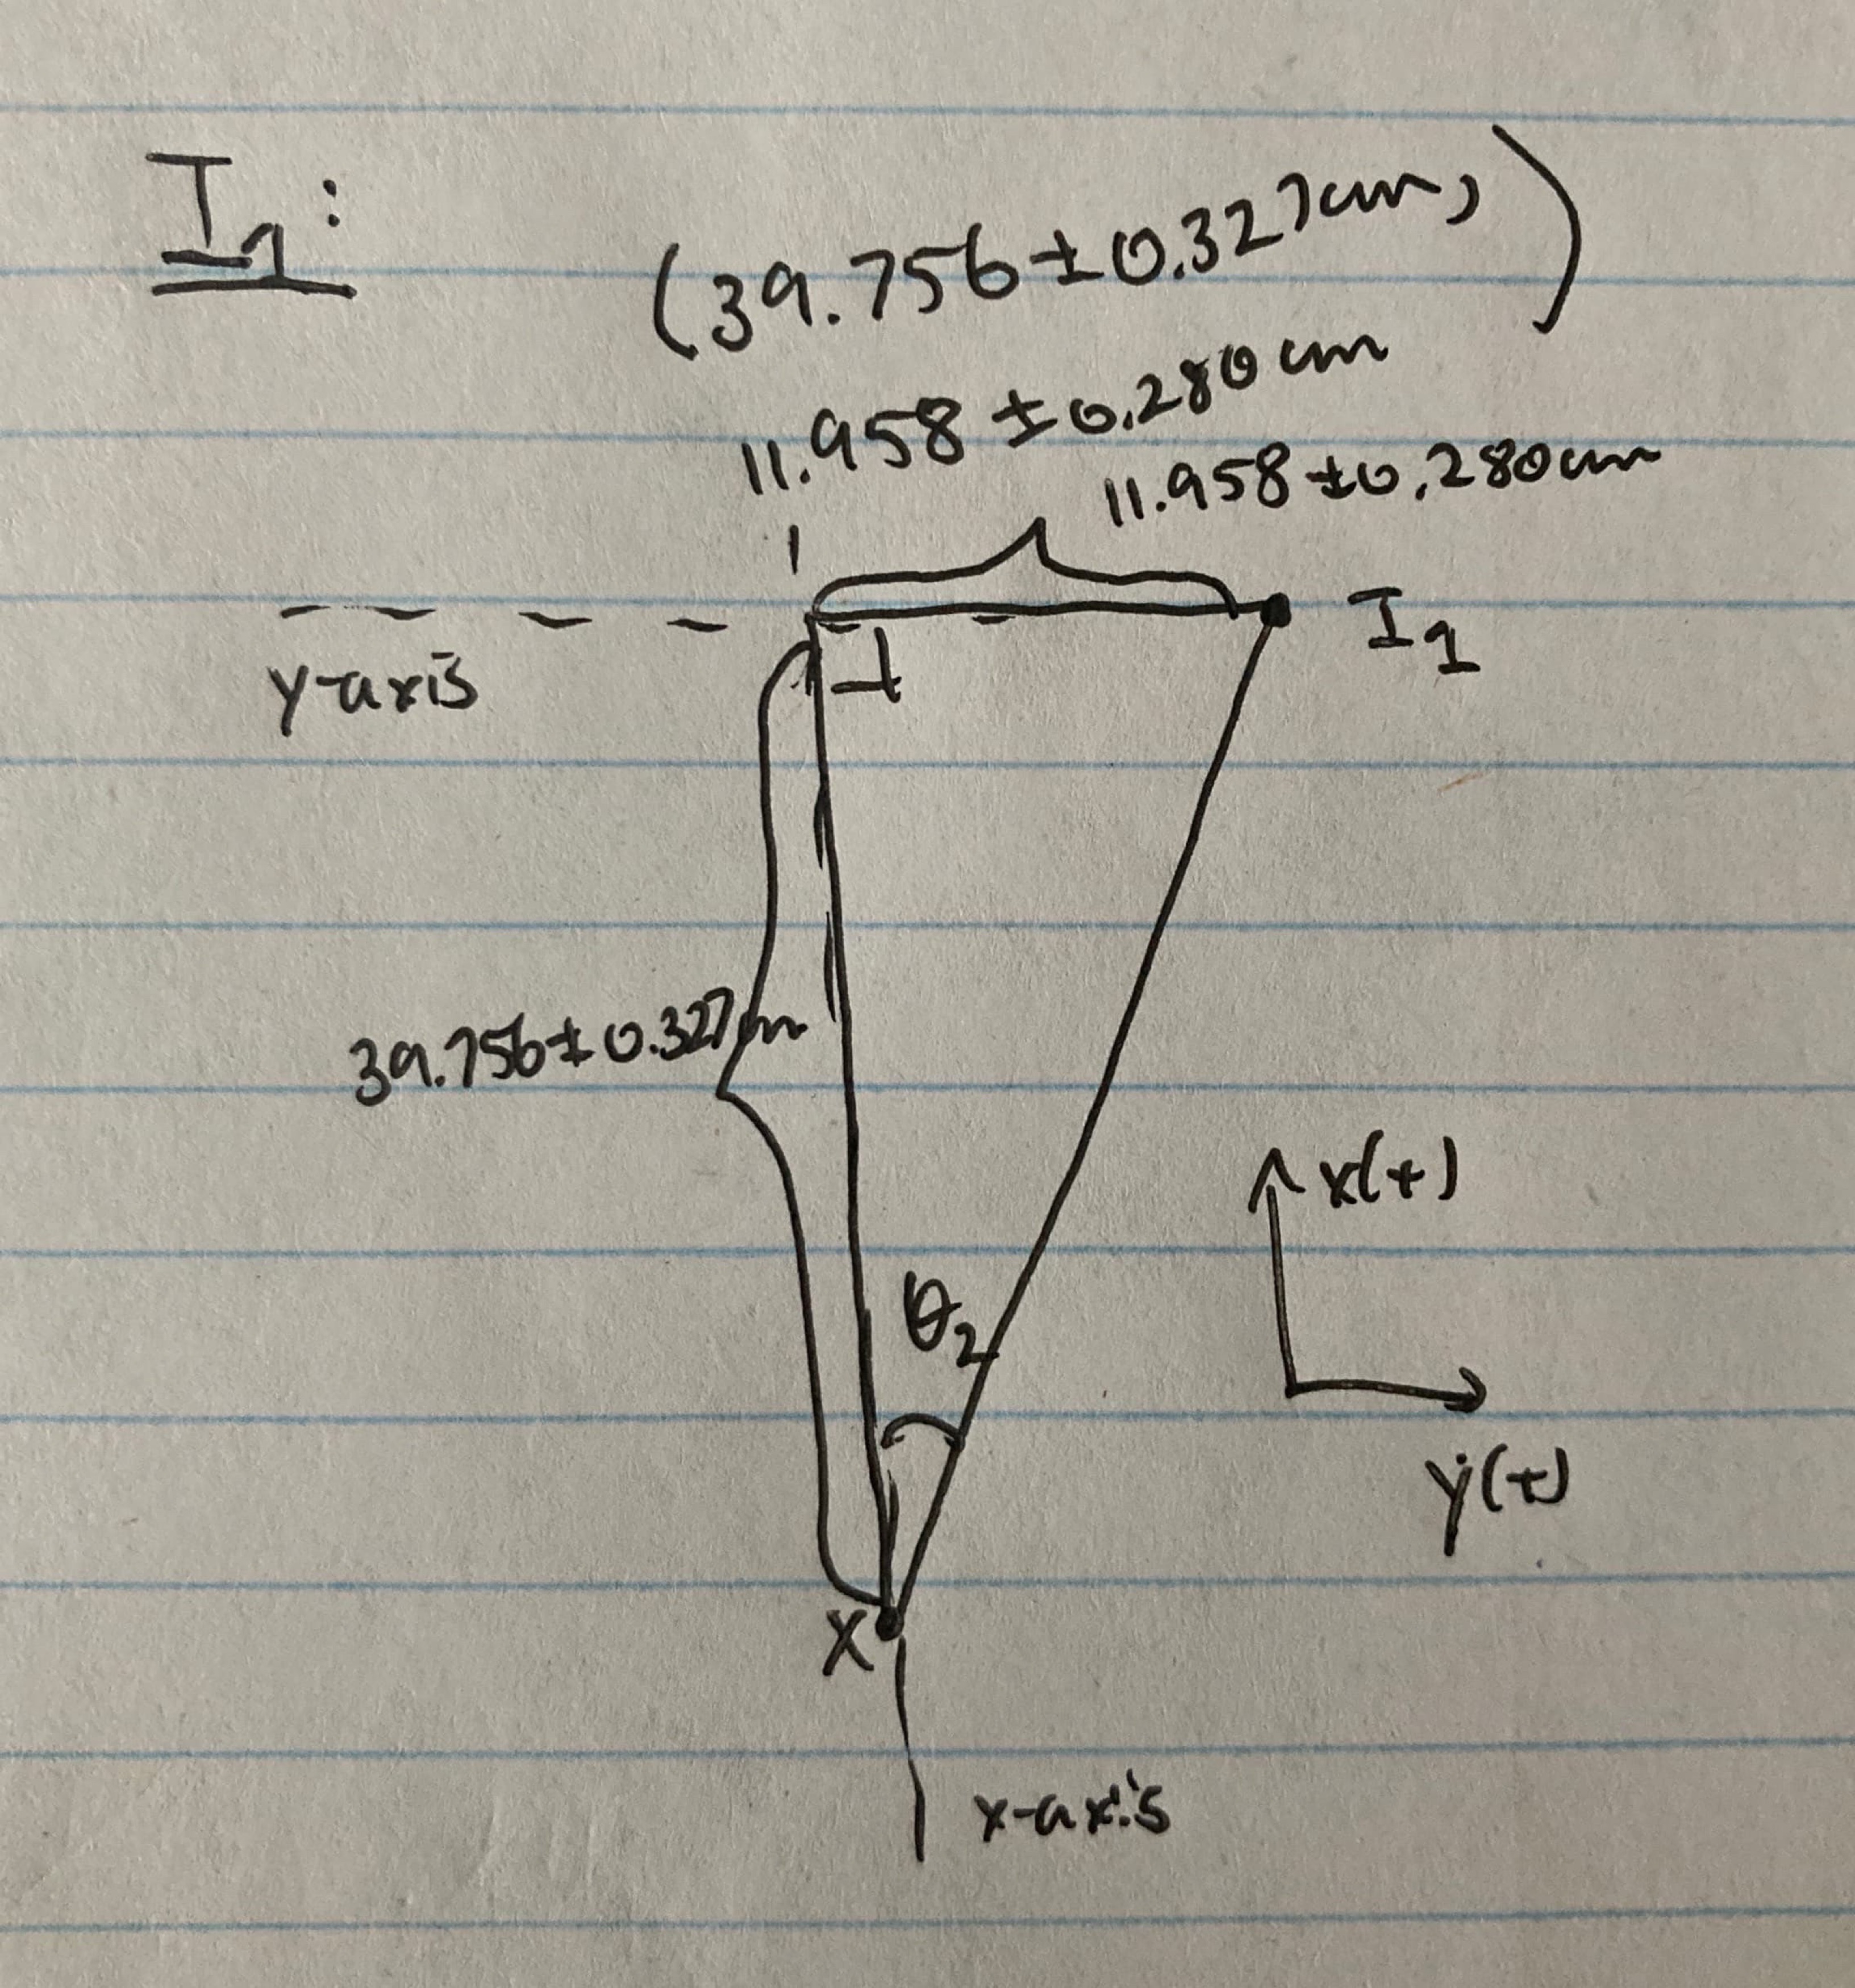 I₁:
(39.756 ± 0.327cm,
11.958 ± 0.280cm)
11.958 ± 0.280cm
I₁
y-axis
39.756 ± 0.327cm
x(+)
θ₂
y(+)
X
x-axis